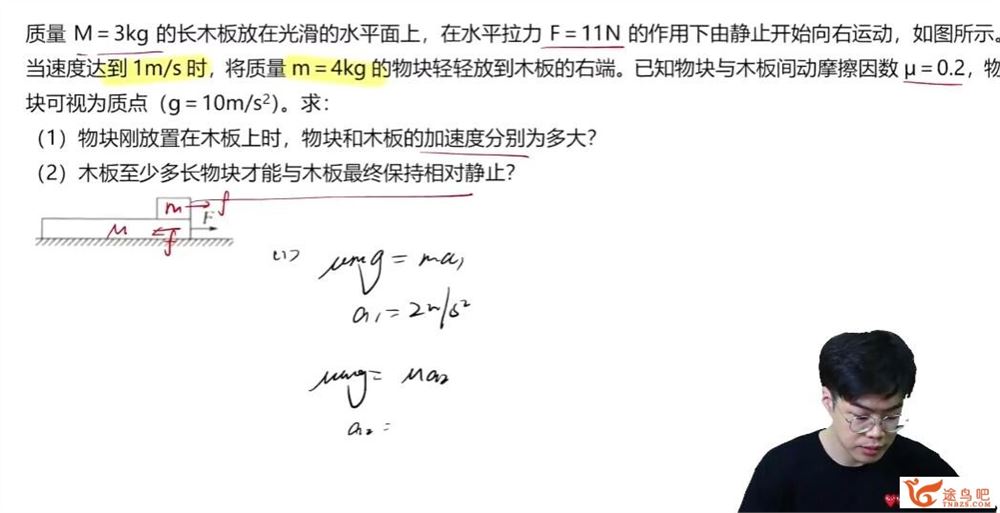 质量 M = 3kg 的长木板放在光滑的水平面上，在水平拉力 F = 11N 的作用下由静止开始向右运动，如图所示。
当速度达到 1m/s 时，将质量 m = 4kg 的物块轻轻放到木板的右端。已知物块与木板间动摩擦因数 μ = 0.2，物
块可视为质点（g = 10m/s²）。求：
（1）物块刚放置在木板上时，物块和木板的加速度分别为多大？
（2）木板至少多长物块才能与木板最终保持相对静止？
m f
F
M f
(1) μmg = ma₁
a₁ = 2m/s²
μmg = Ma₂
a₂ =
途鸟吧
TNBZS.COM